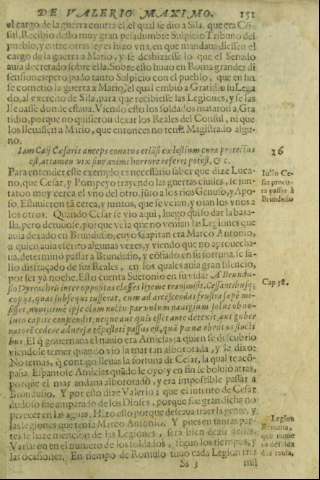 DE VALERIO MAXIMO. 151
el cargo de la guerra contra el, el qual se dio a Sila, que era Con
sul. Recibio desto muy gran pesadumbre Sulpicio Tribuno del
pueblo, y entre otras leyes hizo vna, en que mandaua diessen el
cargo de la guerra a Mario, y se deshiziesse lo que el Senado
auia decretado sobre ella. Sobre esto huuo en Roma grandes di
sensiones, pero pudo tanto Sulpicio con el pueblo, que en fin
se cometio la guerra a Mario, el qual embio a Gratidio su Lega
do, al exercito de Sila, para que recibiesse las Legiones, y se las
lleuasse donde estaua. Viendo esto los Soldados mataron a Gra
tidio, porque no quisieron dexar los Reales del Consul, ni que
los lleuassen a Mario, que entonces no tenia Magistrado algu-
no.
Iam Caij Cæsaris anceps conatus etiãsi cælestium cura protectus
est, attamen vix sine animi horrore referri potest, &c.
26
Iulio Ce
sar
passar à
Brundusio
Para entender este exemplo es necessario saber que dize Luca-
no, que Cesar, y Pompeyo trayendo las guerras ciuiles, se jun-
taron muy cerca el vno del otro, junto a los rios Genuso, y Apo-
so. Estuuieron tã cerca, y juntos, que se veian, y oian los vnos a
los otros. Quando Cesar se vio aqui, luego quiso dar la bata-
lla, pero detuuose, porque veia que no venian las Legiones que
auia dexado en Brundusio, cuyo Capitan era Marco Antonio,
a quien auia escrito algunas vezes, y viendo que no aprouecha-
ua, determinò passar a Brundusio, y cõfiado en su fortuna, se sa-
lio disfraçado de sus Reales, en los quales auia gran silencio,
por ser ya noche. Esto cuenta Suetonio en su vida: A Brundu-
Cap 58.
sio Dyrrachiũ inter oppositas classes hyeme transmisit. Cessantibusq;
copijs, quas subsequi iusserat, cum ad arcessendas frustra sæpe mi-
sisset, nouissime ipse clam noctu paruulum nauigium solus obuo-
luto capite conscendit: neque aut quis esset ante detexit, aut guber
natorẽ cedere aduersæ tẽpestati passus est, quã pæne obrutus flucti
bus. El q̃ gouernaua el nauio era Amiclas, a quien se descubrio
viendole temer quando vio la mar tan alborotada, y le dixo:
No temas, q̃ contigo lleuas la fortuna de Cesar, la qual te acõ-
paña. Espantose Amiclas quãdo le oyo, y en fin se boluio atras,
porque el mar andaua alborotado, y era impossible passar a
Brundusio. Y por esto dize Valerio, que el intento de Cesar,
aunque fue amparado de los Dioses, porque fue gran dicha no
perecer en las aguas. Hizo esto porque desseaua traer la gente, y
las legiones que tenia Marco Antonio. Y pues en tantas par-
Legion
Romana,
que
tes se haze mencion de las Legiones, será bien dezir
Variaron en el numero de los soldados, segun los tiempos, y
las ocasiones. En tiempo de Romulo tuuo cada Legion tres
Ss 3 mil